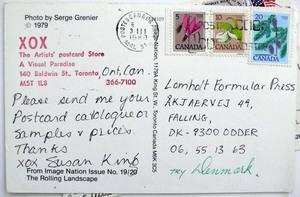 Photo by Serge Grenier
© 1979
XOX
The Artists' postcard Store
A Visual Paradise
140 Baldwin St., Toronto, Ont, Can.
M5T 1L8 366-7100
Please send me your
Postcard catalogue or
samples & prices.
Thanks
xox Susan King
From Image Nation Issue No. 19/20
The Rolling Landscape
Nation, 1179A King St W. Toronto Canada M6K 3C5
5
CANADA
3
CANADA
20
CANADA
Lomholt Formular Press
FALLING,
DK-8300 ODDER
06, 55 13 63
TRY Denmark